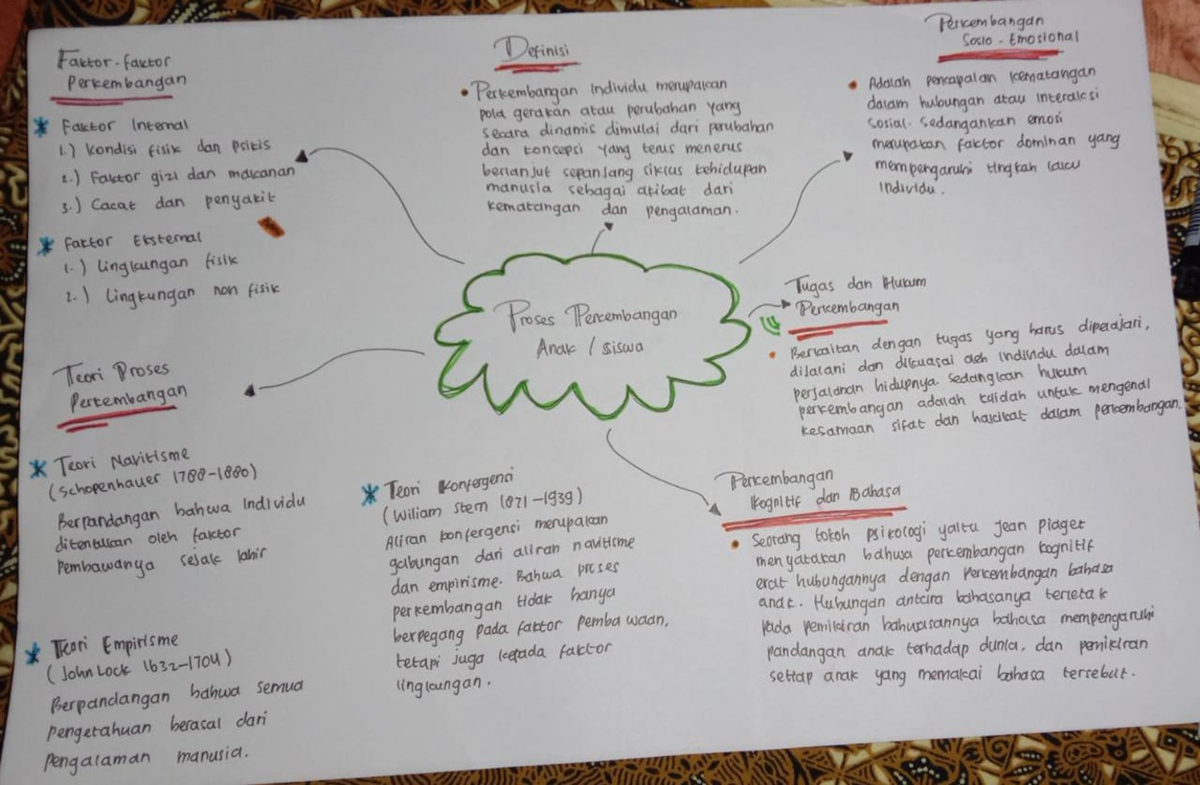 Faktor-faktor
Perkembangan
Faktor Internal
1.) Kondisi fisik dan psikis
2.) Faktor gizi dan makanan
3.) Cacat dan penyakit
Faktor Eksternal
1.) Lingkungan fisik
2.) Lingkungan non fisik
Definisi
Perkembangan Individu merupakan
pola gerakan atau perubahan yang
secara dinamis dimulai dari perubahan
dan konsepsi yang terus menerus
berlanjut sepanjang siklus kehidupan
manusia sebagai akibat dari
kematangan dan pengalaman.
Perkembangan
Sosio-Emosional
Adalah pencapaian kematangan
dalam hubungan atau interaksi
sosial. Sedangankan emosi
merupakan faktor dominan yang
mempengaruhi tingkah laku
Individu.
Proses Perkembangan
Anak / Siswa
Tugas dan Hukum
Perkembangan
Berkaitan dengan tugas yang harus dipelajari,
dijalani dan dikuasai oleh individu dalam
perjalanan hidupnya. Sedangkan hukum
perkembangan adalah kaidah untuk mengenal
kesamaan sifat dan hakikat dalam perkembangan.
Teori Proses
Perkembangan
Teori Navitisme
(Schopenhauer 1788-1880)
Berpandangan bahwa Individu
ditentukan oleh faktor
Pembawanya sejak lahir
Teori Empirisme
(John Lock 1632-1704)
Berpandangan bahwa semua
pengetahuan berasal dari
Pengalaman manusia.
Teori Konfergensi
(Wiliam Stern 1871-1939)
Aliran konfergensi merupakan
gabungan dari aliran navitisme
dan empirisme. Bahwa proses
perkembangan tidak hanya
berpegang pada faktor pembawaan,
tetapi juga kepada faktor
lingkungan.
Perkembangan
Kognitif dan Bahasa
Seorang tokoh psikologi yaitu Jean Piaget
menyatakan bahwa perkembangan kognitif
erat hubungannya dengan Perkembangan bahasa
anak. Hubungan antara bahasanya terletak
pada pemikiran bahwasannya bahasa mempengaruhi
pandangan anak terhadap dunia, dan pemikiran
setiap anak yang memakai bahasa tersebut.